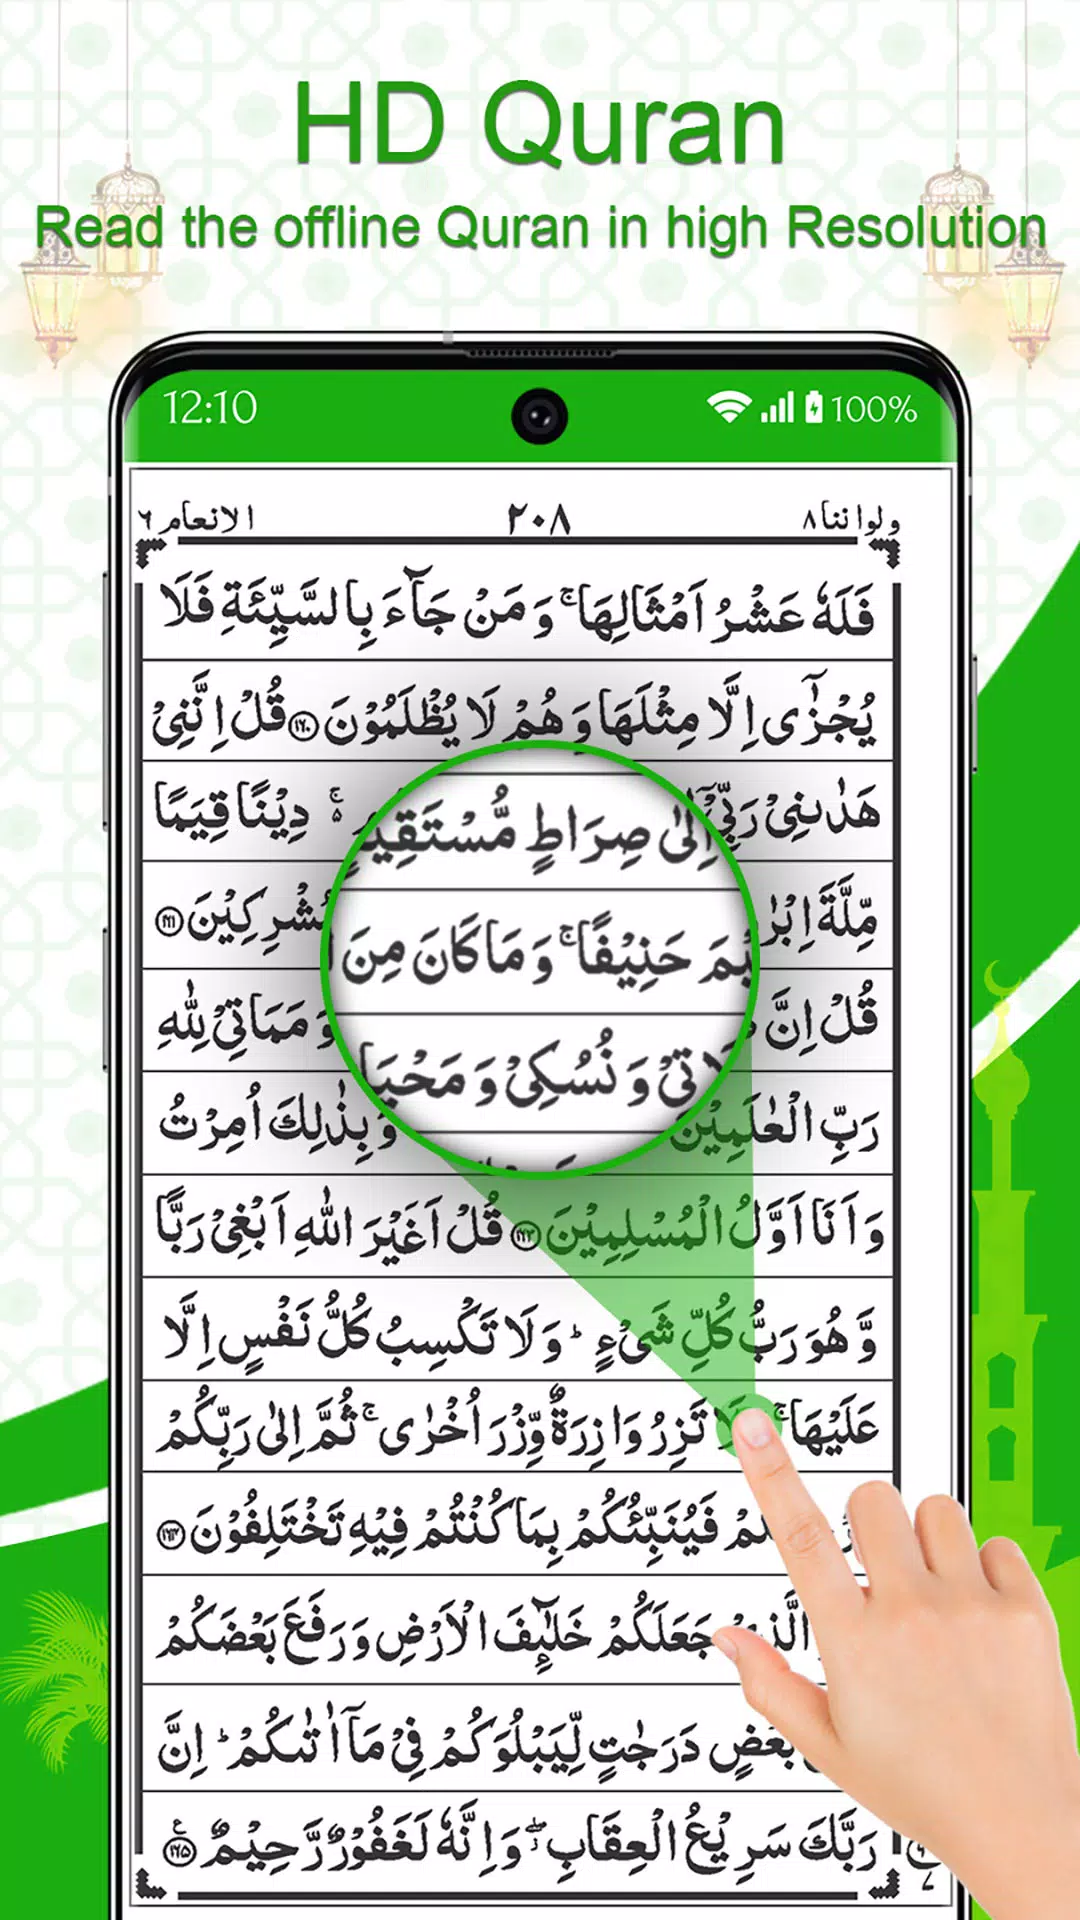 HD Quran
Read the offline Quran in high Resolution
12:10 100%
ولواننا ٨ ٢٠٨ الانعام ٦
فَلَهٗ عَشْرُ اَمْثَالِهَا ۚ وَ مَنْ جَآءَ بِالسَّیِّئَةِ فَلَا
یُجْزٰۤی اِلَّا مِثْلَهَا وَ هُمْ لَا یُظْلَمُوْنَ ﴿۱۶۰﴾ قُلْ اِنَّنِیْ
هَدٰىنِیْ رَبِّیْۤ اِلٰی صِرَاطٍ مُّسْتَقِیْ ۚ ٥ دِیْنًا قِیَمًا
مِّلَّةَ اِبْرٰ حَنِیْفًا ۚ وَ مَا كَانَ مِنَ مُشْرِكِیْنَ ﴿۱۶۱﴾
قُلْ اِنَّ لَاتِیْ وَ نُسُكِیْ وَ مَحْیَا وَ مَمَاتِیْ لِلّٰهِ
رَبِّ الْعٰلَمِیْنَ وَ بِذٰلِكَ اُمِرْتُ
وَ اَنَا اَوَّلُ الْمُسْلِمِیْنَ ﴿۱۶۳﴾ قُلْ اَغَیْرَ اللّٰهِ اَبْغِیْ رَبًّا
وَّ هُوَ رَبُّ كُلِّ شَیْءٍ ؕ وَ لَا تَكْسِبُ كُلُّ نَفْسٍ اِلَّا
عَلَیْهَا ۚ لَا تَزِرُ وَازِرَةٌ وِّزْرَ اُخْرٰی ۚ ثُمَّ اِلٰی رَبِّكُمْ
فَیُنَبِّئُكُمْ بِمَا كُنْتُمْ فِیْهِ تَخْتَلِفُوْنَ ﴿۱۶۴﴾
الَّذِیْ جَعَلَكُمْ خَلٰٓئِفَ الْاَرْضِ وَ رَفَعَ بَعْضَكُمْ
بَعْضٍ دَرَجٰتٍ لِّیَبْلُوَكُمْ فِیْ مَاۤ اٰتٰىكُمْ ؕ اِنَّ
رَبَّكَ سَرِیْعُ الْعِقَابِ ۖ وَ اِنَّهٗ لَغَفُوْرٌ رَّحِیْمٌ ﴿۱۶۵﴾